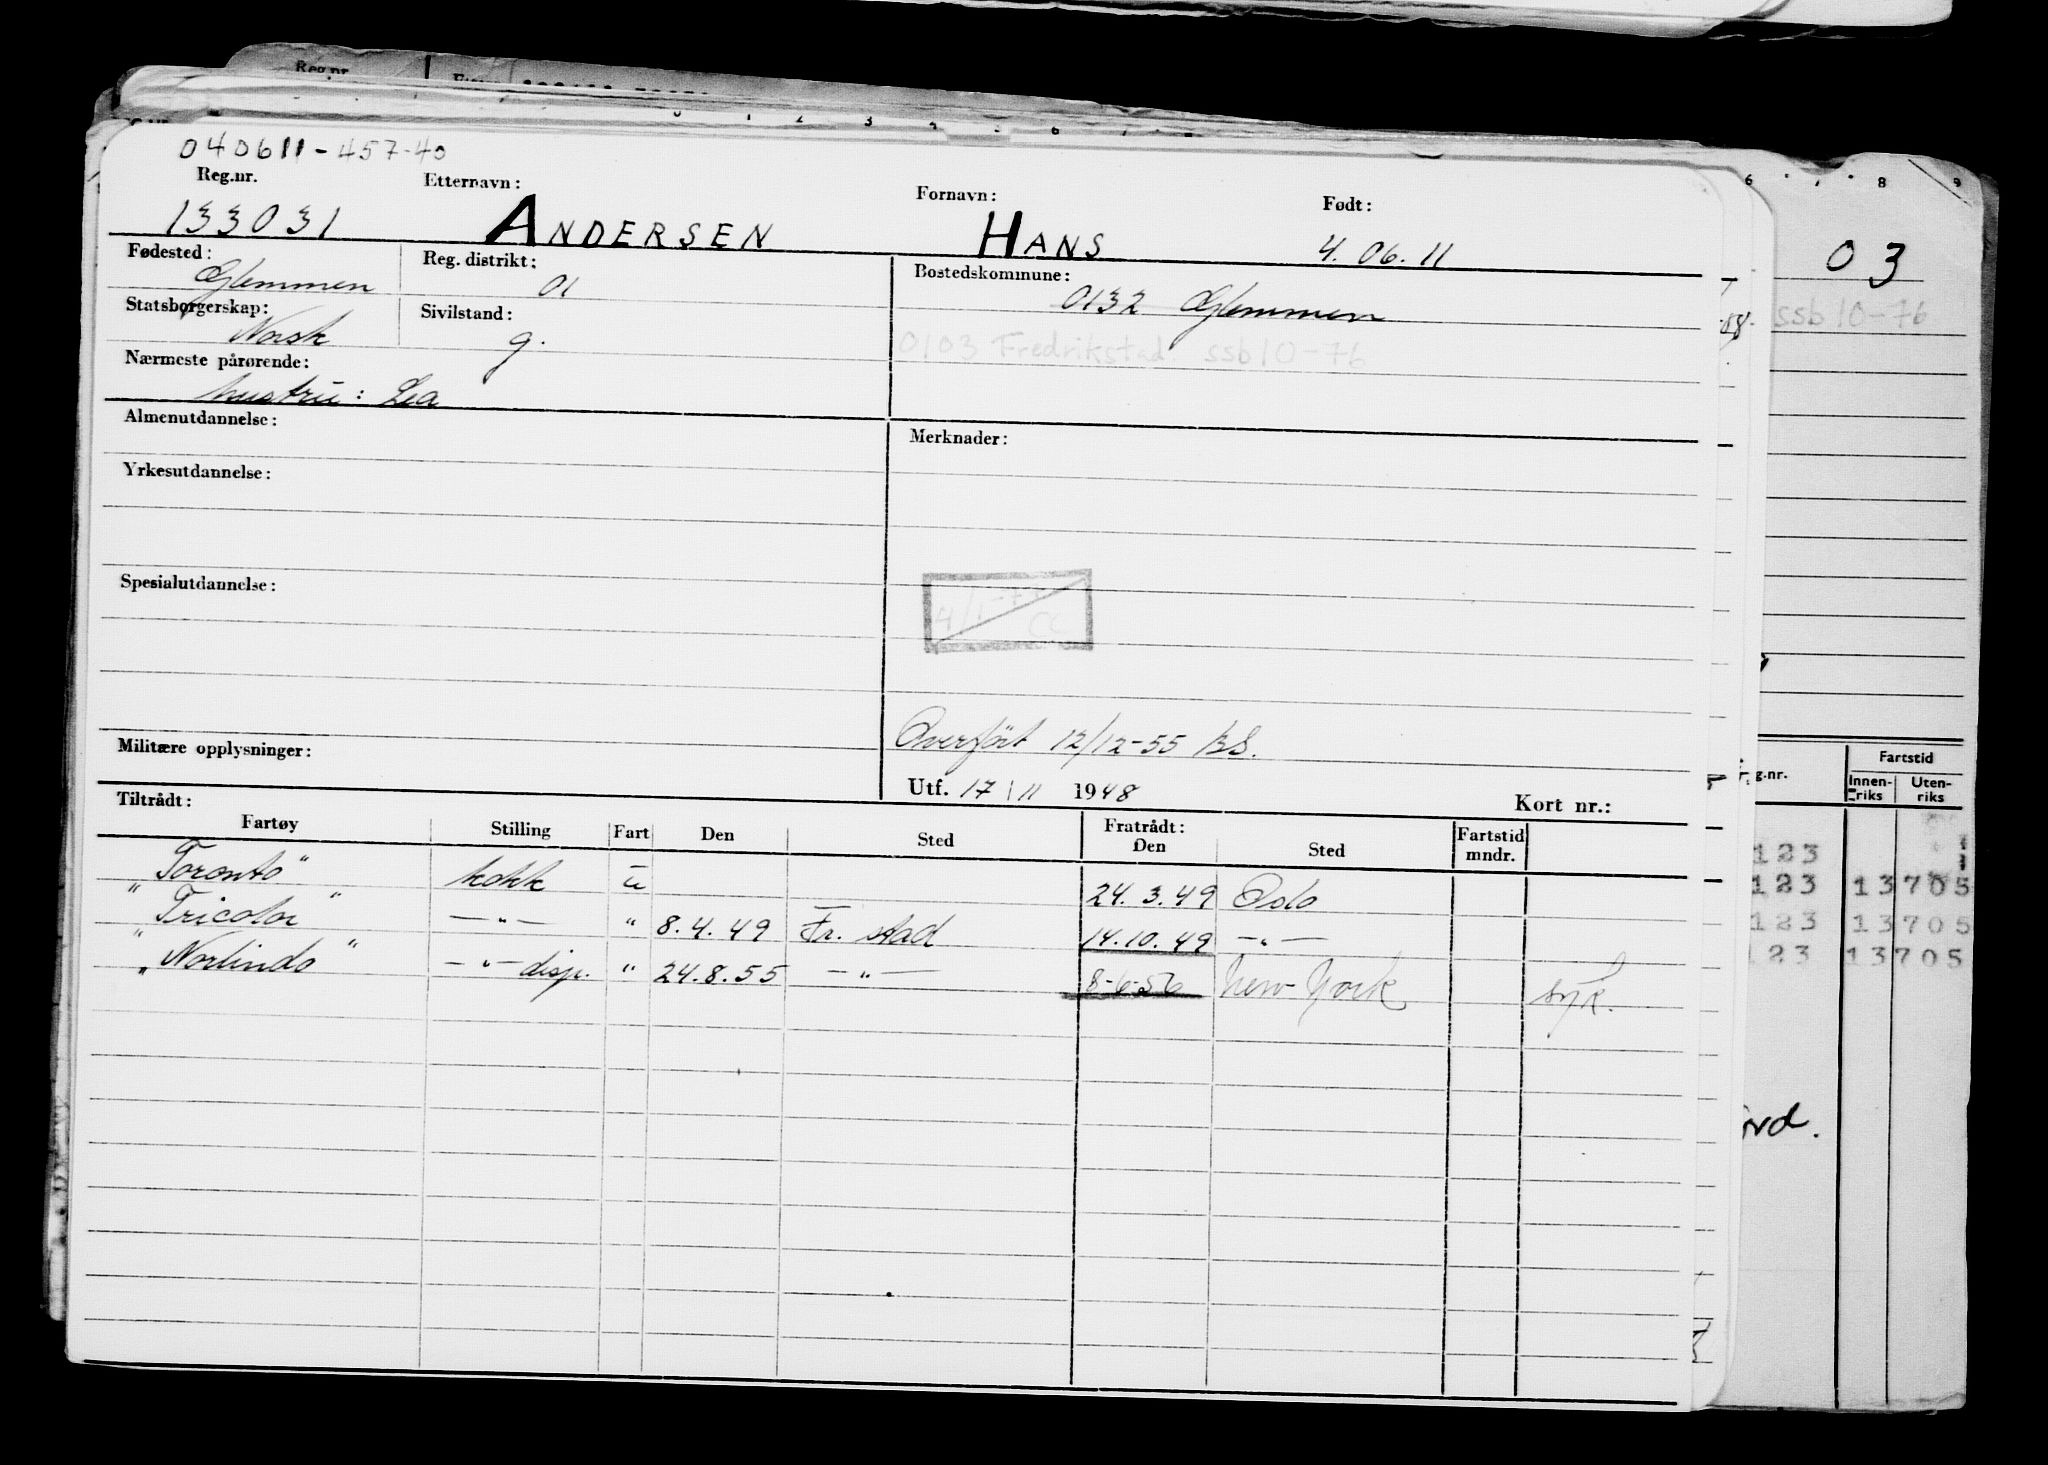 040611-457-40
Reg.nr. Etternavn: Fornavn: Født:
133031 ANDERSEN HANS 4.06.11
Fødested: Reg. distrikt: Bostedskommune:
Glemmen 01 0132 Glemmen
Statsborgerskap: Sivilstand:
Norsk g. 0103 Fredrikstad. ssb 10-76
Nærmeste pårørende:
hustru: Lea
Almenutdannelse: Merknader:
Yrkesutdannelse:
Spesialutdannelse:
Overført 12/12-55 BS.
Militære opplysninger: Utf. 17/11 1948
Tiltrådt: Kort nr.:
Fartøy Stilling Fart Den Sted Fratrådt: Den Sted Fartstid mndr.
"Toronto" kokk u 24.3.49 Oslo
"Tricolor" —"— " 8.4.49 Fr. stad 14.10.49 —"—
"Norlindo" —"— disp. " 24.8.55 —"— 8-6-56 New York syk.
Reg.nr
6 7 8 9
03
ssb 10-76
g.nr. Fartstid
Innen-riks Uten-riks
123
123 13705
123 13705
123 13705